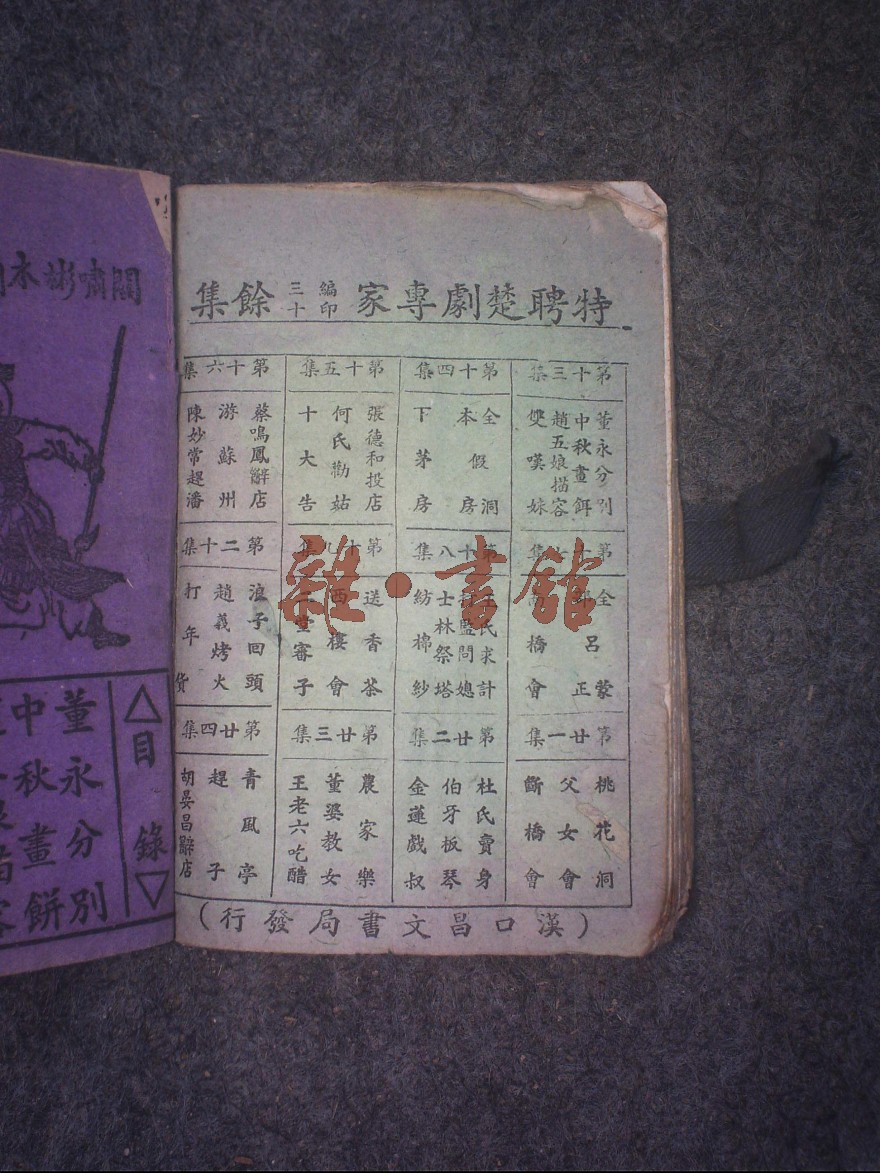 特聘楚劇專家編印三十餘集
第十三集
董永分別
中秋畫餌
趙五娘描容
雙嘆妹
第十四集
全假洞房
本
下茅房
第十五集
張德和投店
何氏勸姑
十大告
第十六集
蔡鳴鳳辭店
游蘇州
陳妙常趕潘
第
集
全呂蒙正
橋會
第十八集
氏求計
監問媳
士林祭塔
紡棉紗
第十九集
送香茶
西樓會
二堂審子
第二十集
浪子回頭
趙義烤火
打年貨
第廿一集
桃花洞
父女會
斷橋會
第廿二集
杜氏賣身
伯牙板琴
金蓮戲叔
第廿三集
農家樂
董婆教女
王老六吃醋
第廿四集
青風亭
趕子
胡晏昌辭店
(漢口昌文書局發行)
雜·書館
關嘯彬本
△目錄▽
董永分別
中秋畫餅